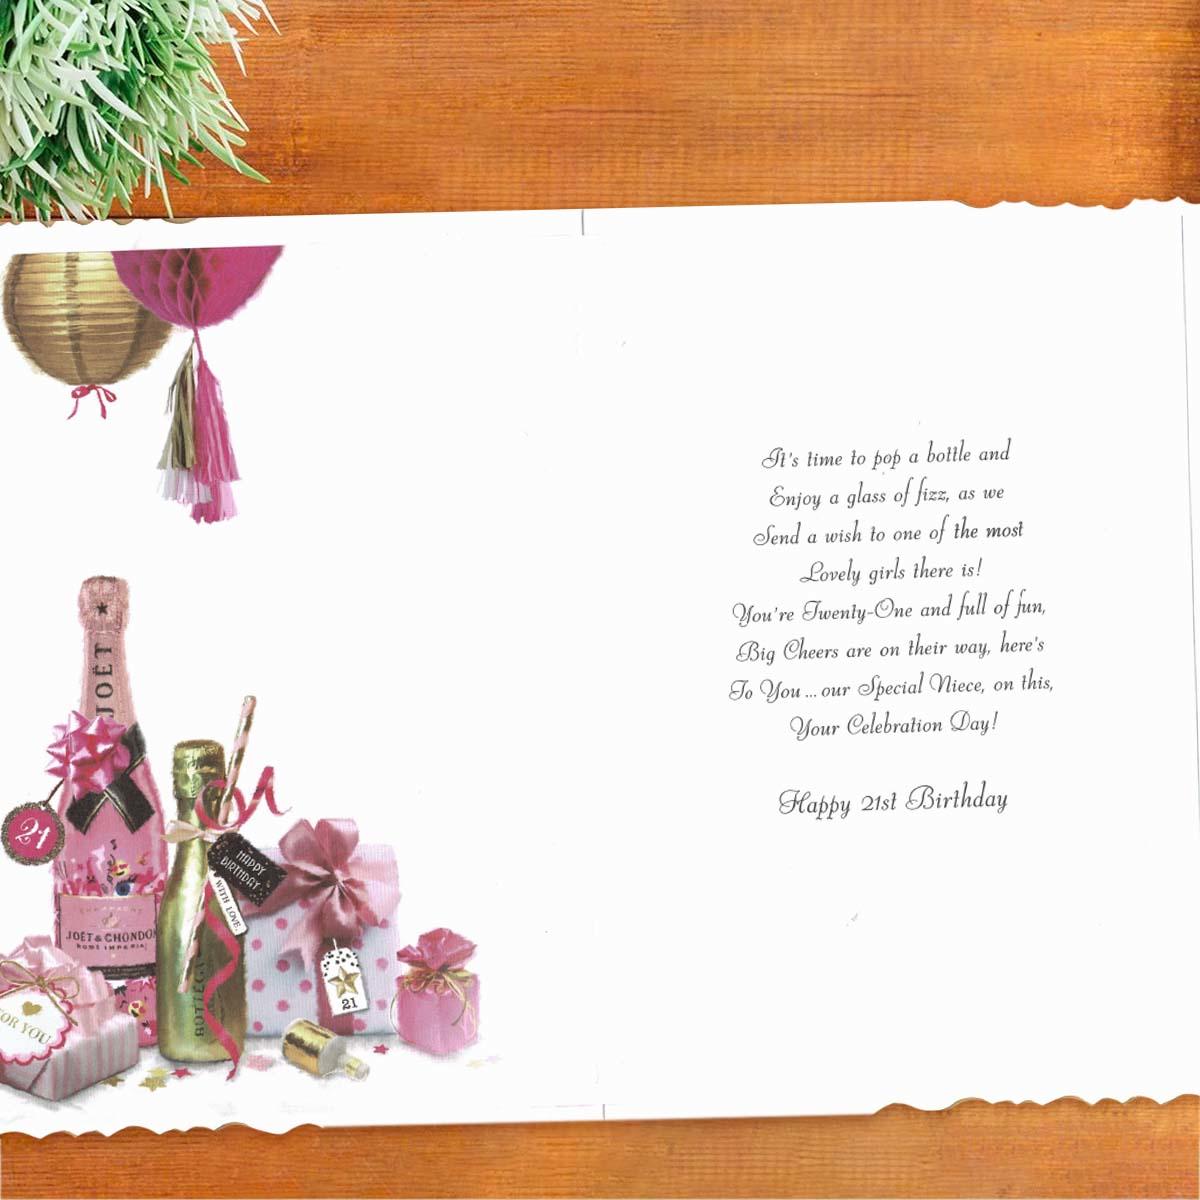 JOËT
21
HAPPY
BIRTHDAY
WITH LOVE
CHAMPAGNE
JOËT & CHONDON
ROSÉ IMPERIAL
BOTTEGA
21
FOR YOU
It's time to pop a bottle and
Enjoy a glass of fizz, as we
Send a wish to one of the most
Lovely girls there is!
You're Twenty-One and full of fun,
Big Cheers are on their way, here's
To You ... our Special Niece, on this,
Your Celebration Day!
Happy 21st Birthday